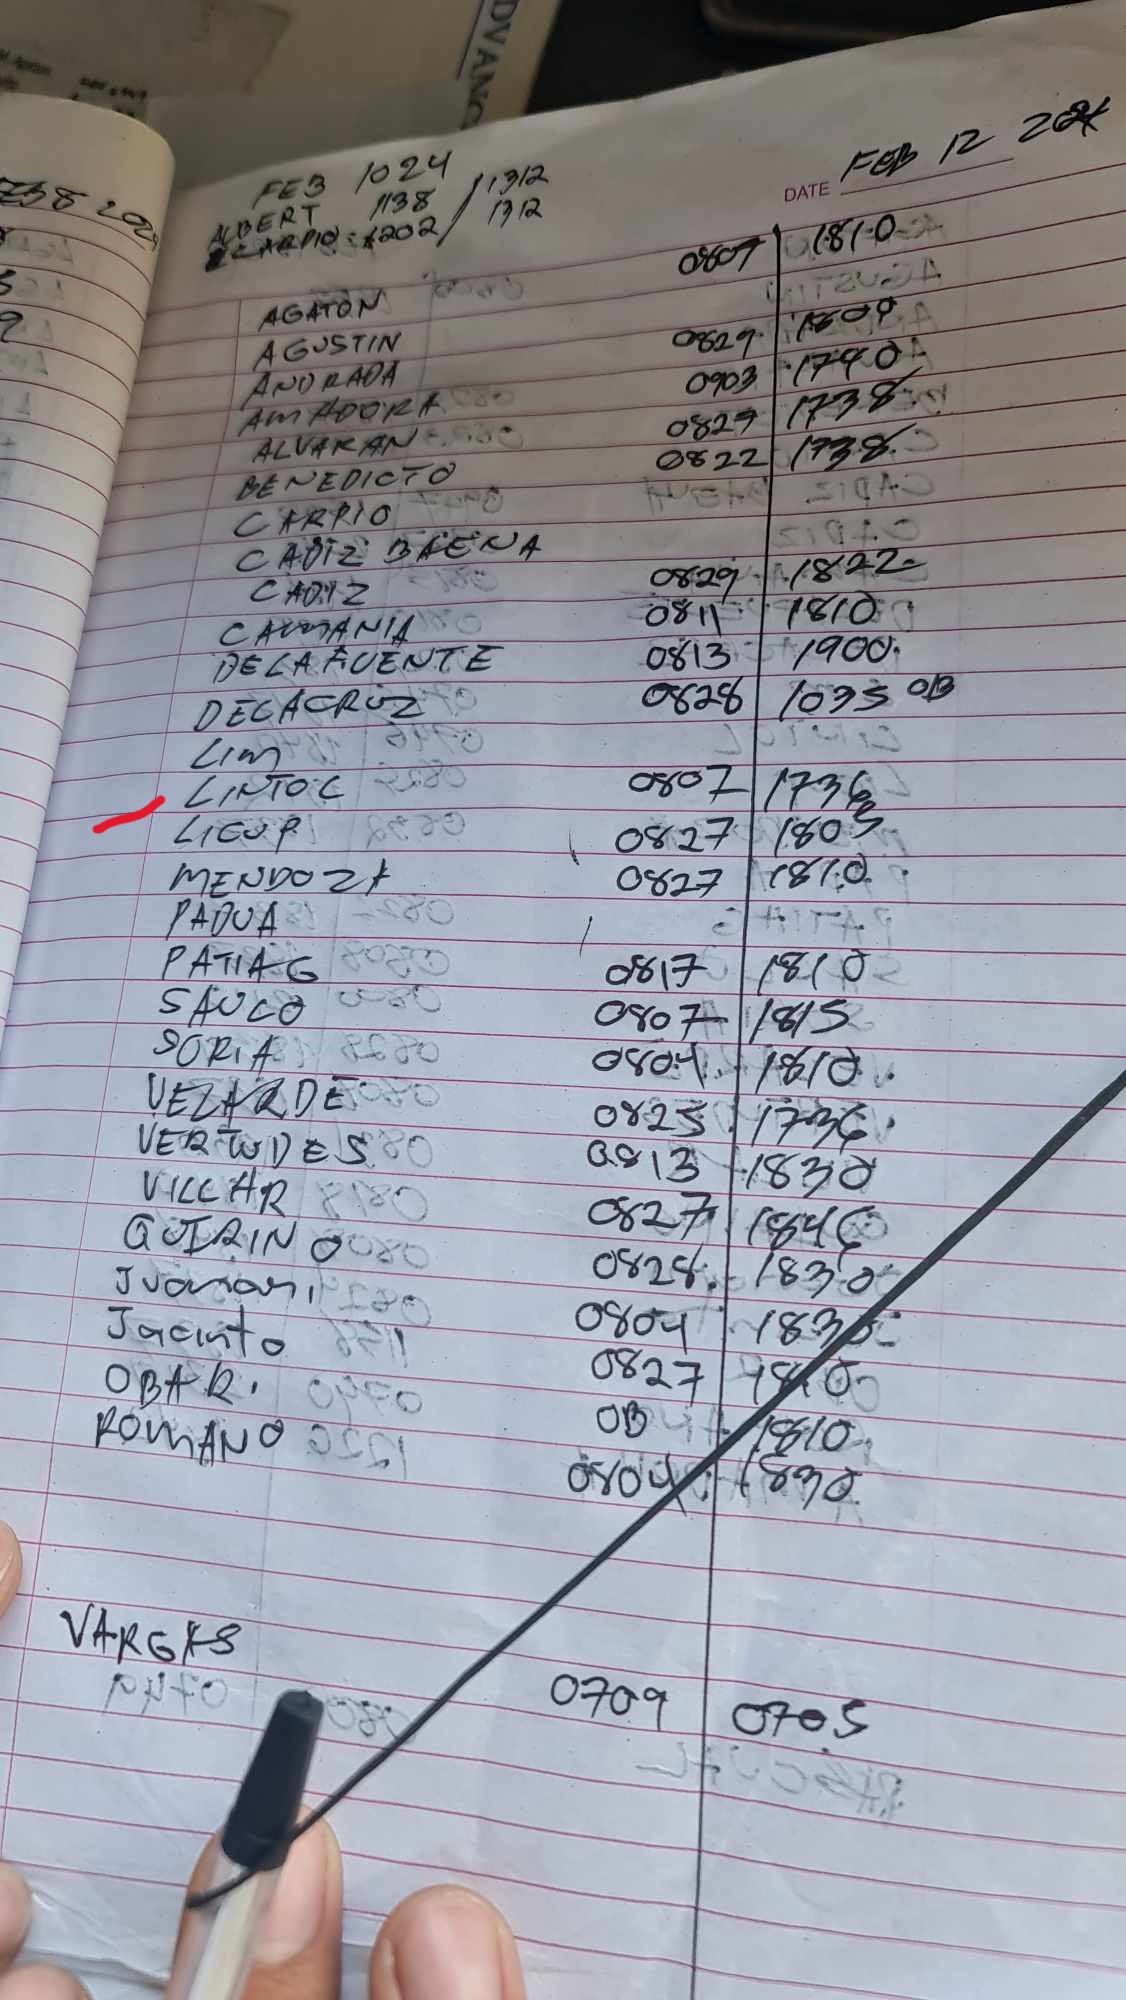 ADVANC
FEB 8 2024
FEB 1024
ALBERT 1138 / 1312
CARPIO: 1202 / 1312
DATE FEB 12 2024
AGATON 0807 1810
AGUSTIN
ANDRADA 0829 1809
AMADORA 0903 1740
ALVARAN 0827 1738
BENEDICTO 0822 1738
CARPIO
CADIZ BAENA
CADIZ 0829 1822
CAUMANIA 0811 1810
DELAFUENTE 0813 1900
DELACRUZ 0828 1035 OB
LIM
LINTOC 0807 1736
LICUP 0827 1803
MENDOZA 0827 1810
PADUA
PATIAG 0817 1810
SAUCO 0807 1815
SORIA 0804 1810
VELARDE 0825 1736
VERTUDES 0813 1830
VILLAR 0827 1846
QUIRINO 0828 1830
Juanani 0804 1830
Jacinto 0827 1810
OBAR. OB 1810
ROMANO 0804 1830
VARGAS 0709 0705